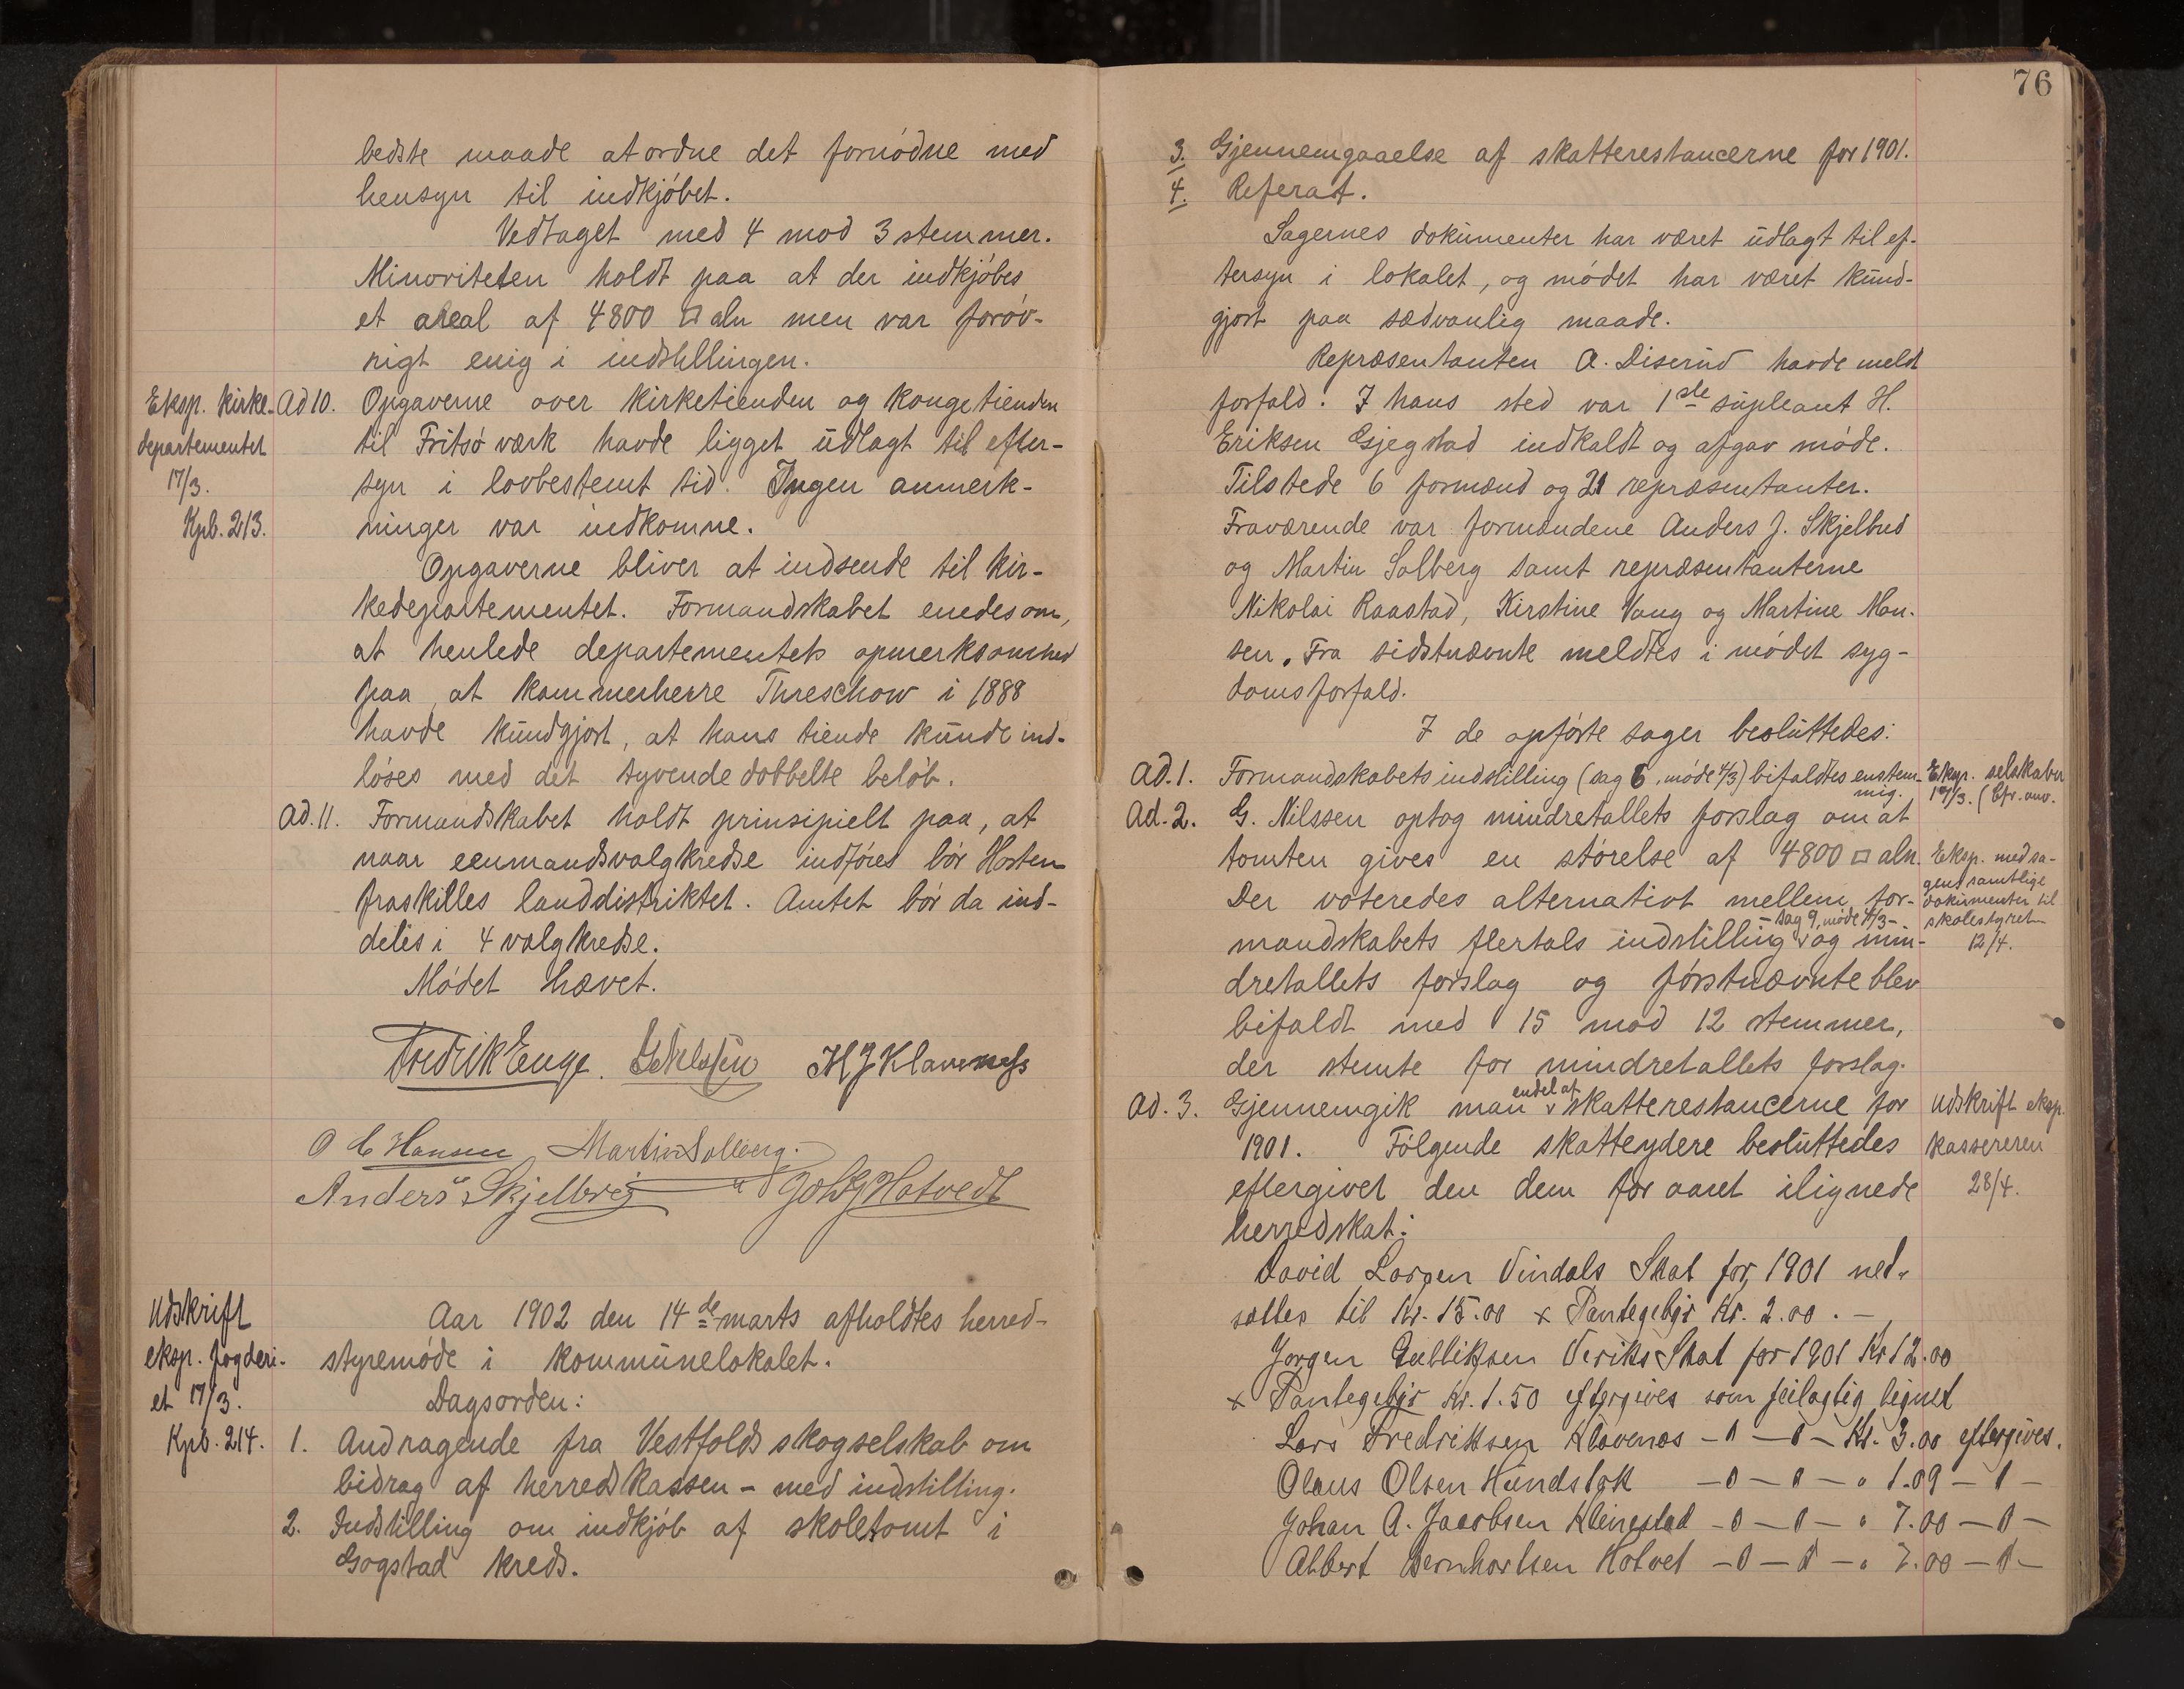 bedste maade at ordne det fornødne med
hensyn til indkjøbet.
Vedtaget med 4 mod 3 stemmer.
Minoriteten holdt paa at der indkjøbes
et areal af 4800 □ aln men var forøv-
rigt enig i indstillingen.
Eksp. kirke-
departementet
17/3.
Kpb. 213.
Ad 10. Opgaverne over kirketienden og kongetienden
til Fritsø værk havde ligget udlagt til efter-
syn i lovbestemt tid. Ingen anmerk-
ninger var indkomne.
Opgaverne bliver at indsende til kir-
kedepartementet. Formandskabet enedes om,
at henlede departementets opmerksomhed
paa, at kammerherre Threschow i 1888
havde kundgjort, at hans tiende kunde ind-
løses med det tyvende dobbelte beløb.
Ad. 11. Formandskabet holdt prinsipielt paa, at
naar eenmandsvalgkredse indføres bør Horten
fraskilles landdistriktet. Amtet bør da ind-
deles i 4 valgkredse.
Mødet hævet.
Fredrik Enge. G Nilssen H J Klavenæss
O C Hansen Martin Solberg.
Anders Skjelbred Joh G Hotvedt
Udskrift
eksp. fogderi-
et 17/3.
Kpb. 214.
Aar 1902 den 14de marts afholdtes herred-
styremøde i kommunelokalet.
Dagsorden:
1. Andragende fra Vestfolds skogselskab om
bidrag af herredskassen - med indstilling.
2. Indstilling om indkjøb af skoletomt i
Gogstad kreds.
76
3. Gjennemgaaelse af skatterestancerne for 1901.
4. Referat.
Sagernes dokumenter har været udlagt til ef-
tersyn i lokalet, og mødet har været kund-
gjort paa sædvanlig maade.
Repræsentanten A. Diserud havde meldt
forfald. I hans sted var 1ste supleant H.
Eriksen Gjegstad indkaldt og afgav møde.
Tilstede 6 formænd og 21 repræsentanter.
Fraværende var formændene Anders J. Skjelbred
og Martin Solberg samt repræsentanterne
Nikolai Raastad, Kirstine Vang og Martine Han-
sen. Fra sidstnævnte meldtes i mødet syg-
domsforfald.
I de opførte sager besluttedes:
Ad. 1. Formandskabets indstilling (sag 6, møde 4/3) bifaldtes enstem-
mig.
Eksp. selskabet
17/3. (
Ad. 2. G. Nilssen optog mindretallets forslag om at
tomten gives en størelse af 4800 □ aln.
Der voteredes alternativt mellem for-
- sag 9, møde 4/3 -
mandskabets flertals indstilling og min-
dretallets forslag og førstnævnte blev
bifaldt med 15 mod 12 stemmer,
der stemte for mindretallets forslag.
Eksp. med sa-
gens samtlige
dokumenter til
skolestyret
12/4.
endel af
Ad. 3. Gjennemgik man skatterestancerne for
1901. Følgende skatteydere besluttedes
eftergivet den dem for aaret ilignede
herredskat:
Udskrift eksp.
kassereren
28/4.
David Larsen Vindals Skat for 1901 ned-
sættes til Kr. 15.00 + Pantegebyr Kr. 2.00. -
Jørgen Gulliksen Veriks Skat for 1901 Kr 12.00
+ Pantegebyr Kr. 1.50 eftergives som feilagtig lignet
Lars Fredriksen Klavenæs - " - " - Kr. 3.00 eftergives.
Olaus Olsen Hundstok - " - " - " 1.09 - " -
Johan A. Jacobsen Kleivestad - " - " - " 7.00 - " -
Albert Bernhartsen Hotvet - " - " - " 7.00 - " -